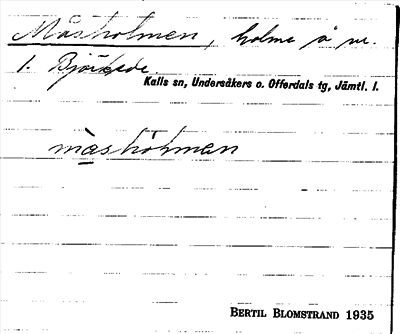 Måsholmen, holme å nr.
1. Björkede.
Kalls sn, Undersåkers o. Offerdals tg, Jämtl. l.
måshòlmen
BERTIL BLOMSTRAND 1935